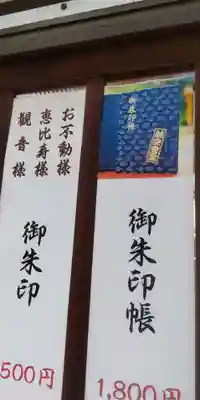 御朱印帳
御朱印帳
1,800円
お不動様
恵比寿様
観音様
御朱印
500円